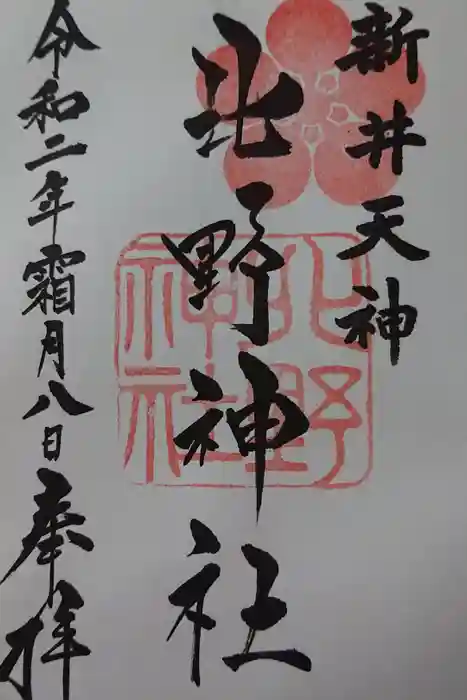 新井天神
北野神社
令和二年霜月八日奉拝
北野
神社